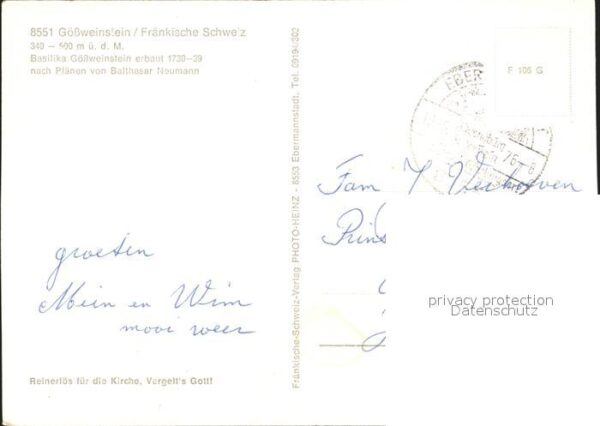 8551 Gößweinstein / Fränkische Schweiz
340 — 500 m ü. d. M.
Basilika Gößweinstein erbaut 1730—39
nach Plänen von Balthasar Neumann
groeten
Mein en Wim
mooi weer
Reinerlös für die Kirche, Vergelt's Gott!
Fränkische-Schweiz-Verlag PHOTO-HEINZ - 8553 Ebermannstadt, Tel. 09194/302
F 105 G
EBER
Fam Y Verhoeven
Prins
privacy protection
Datenschutz